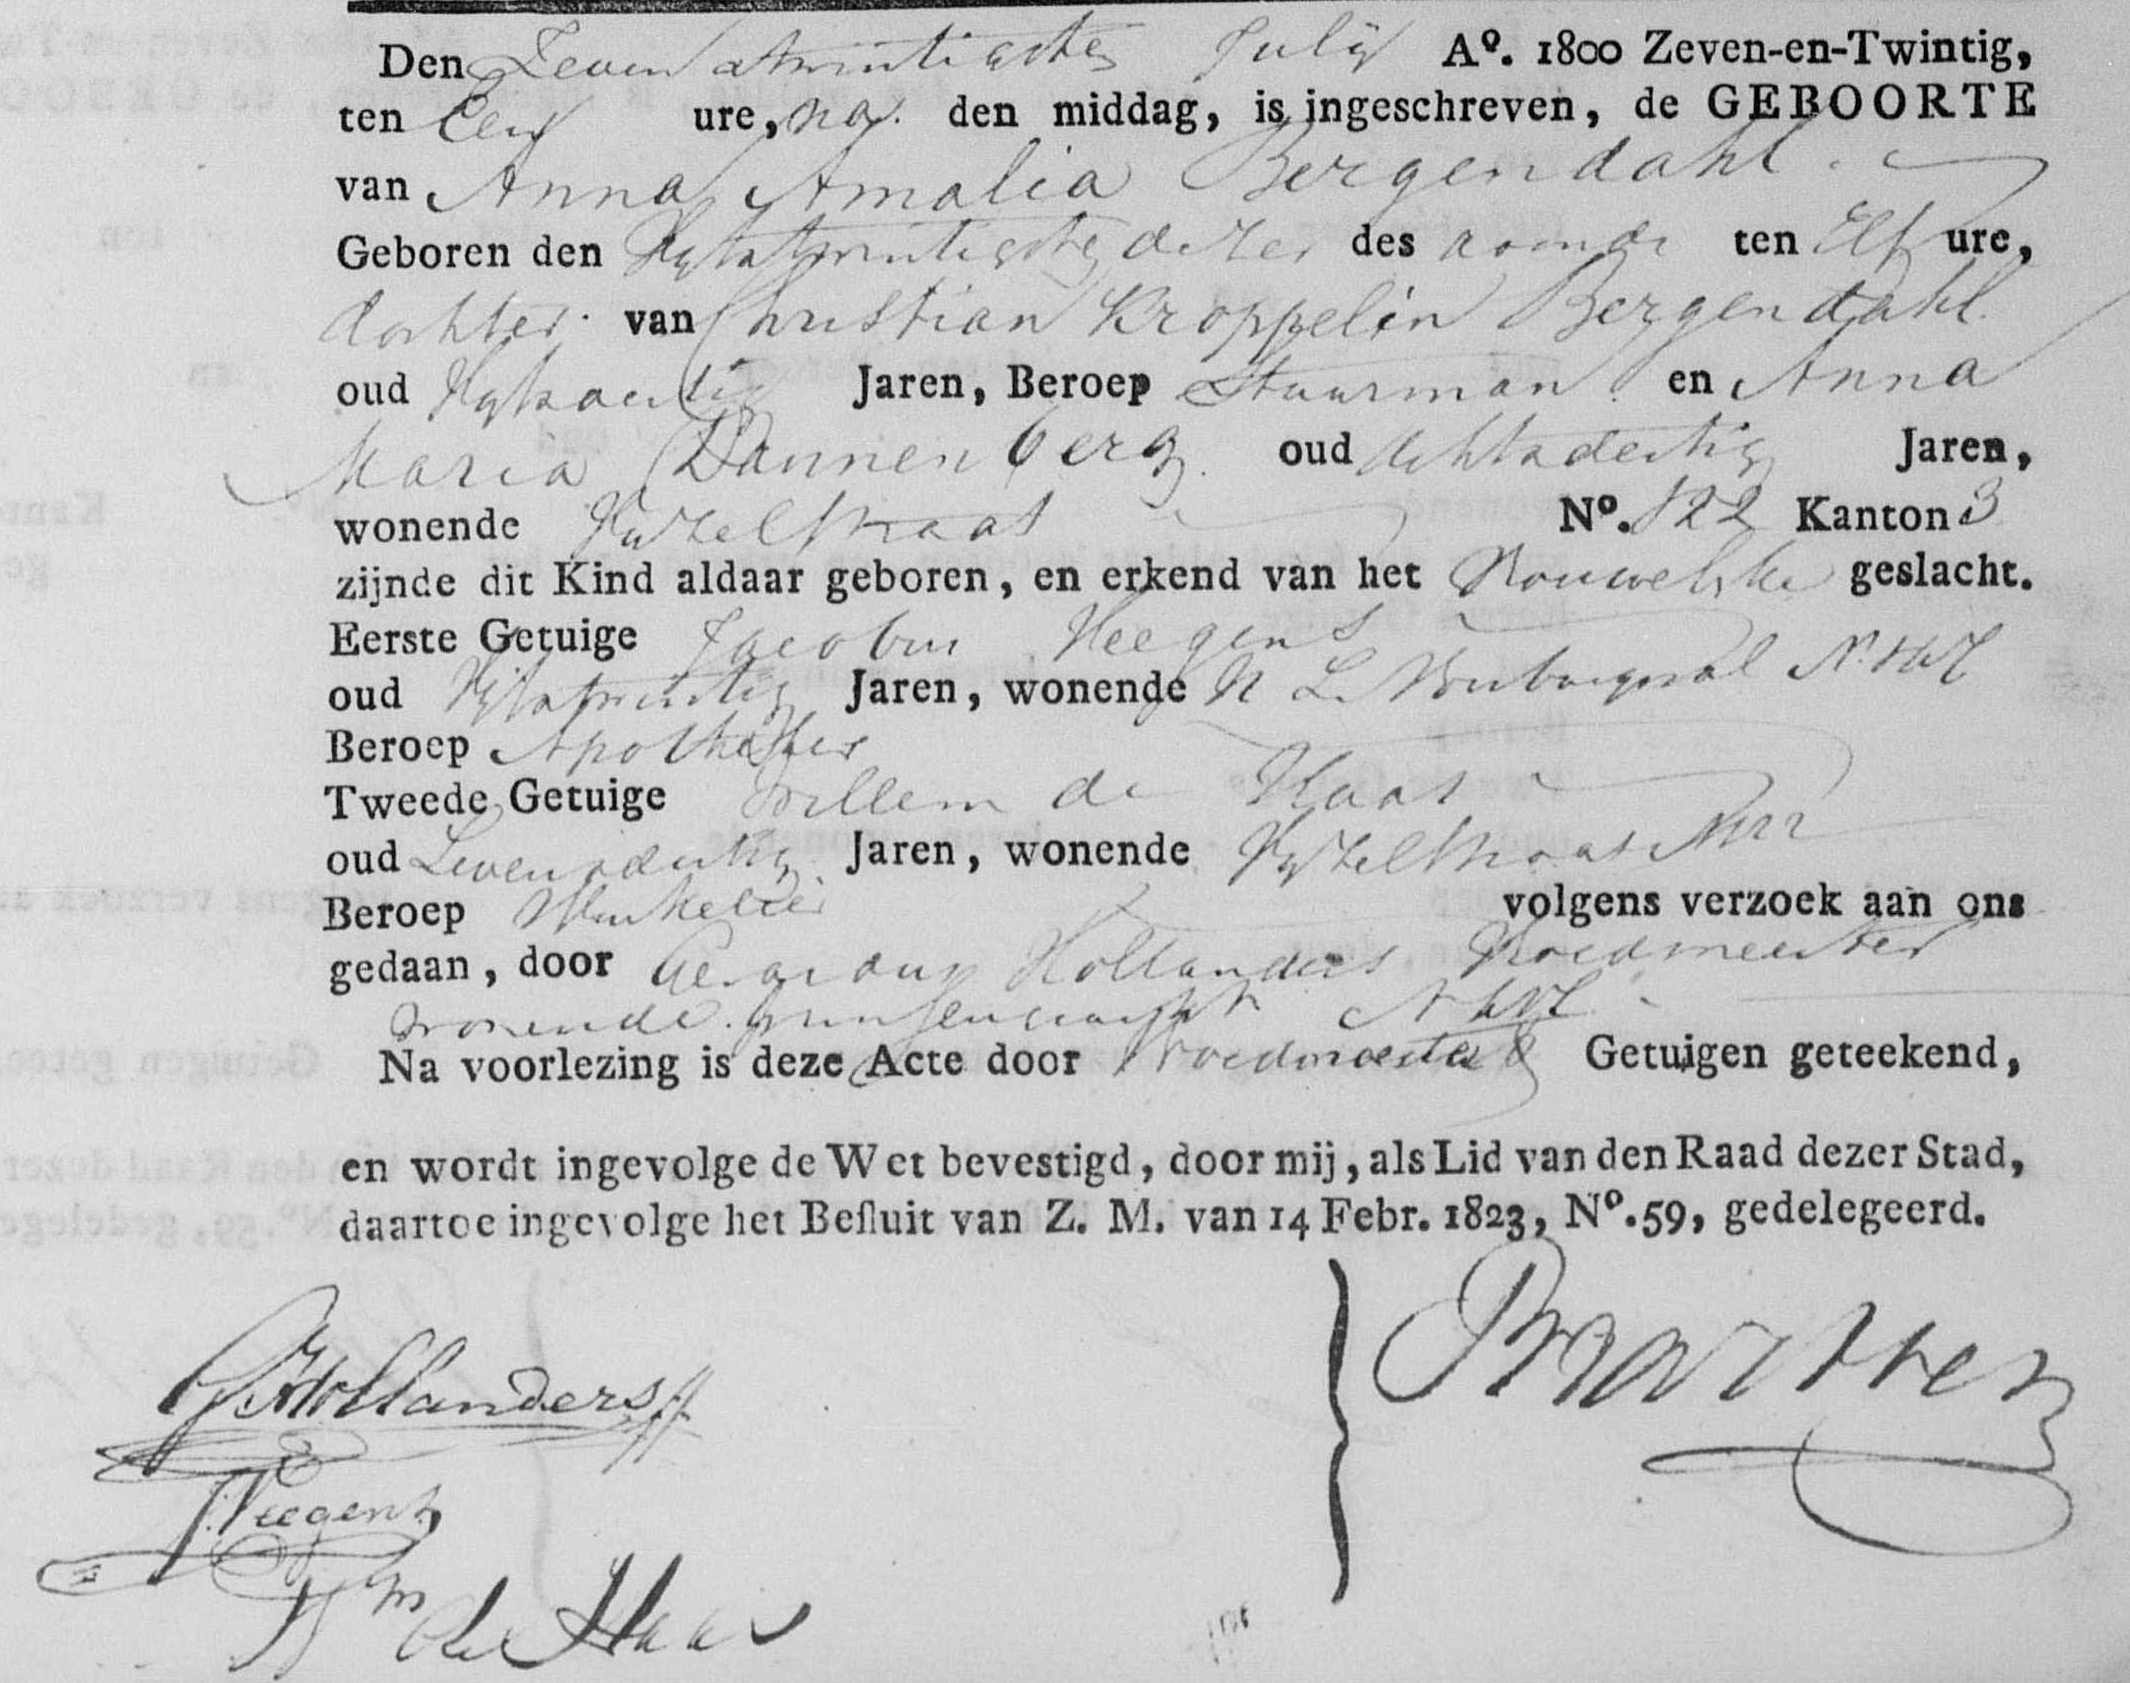 Den Zeven a twintigsten July Aº. 1800 Zeven-en-Twintig,
ten Een ure, na. den middag, is ingeschreven, de GEBOORTE
van Anna Amalia Bergendahl.
Geboren den Vyfatwintigsten dezer des avonds ten Elf ure,
dochter van Christian Kroppelin Bergendahl.
oud Jaren, Beroep Stuurman en Anna
Maria Dannenberg. oud Achtadertig Jaren,
wonende Vyzelstraat Nº. 122 Kanton 3
zijnde dit Kind aldaar geboren, en erkend van het Vrouwelyke geslacht.
Eerste Getuige Jacobus Heegens
oud Vyfatwintig Jaren, wonende N Z Voorburgwal Nº
Beroep Apotheker
Tweede Getuige Willem de Haas
oud Zevenadertig Jaren, wonende Vyzelstraat
Beroep Winkelier volgens verzoek aan ons
gedaan, door Gerardus Hollanders Vroedmeester
wonende Prinsengracht
Na voorlezing is deze Acte door Vroedmeester & Getuigen geteekend,
en wordt ingevolge de Wet bevestigd, door mij, als Lid van den Raad dezer Stad,
daartoe ingevolge het Besluit van Z. M. van 14 Febr. 1823, Nº. 59, gedelegeerd.
G Hollanders
Heegens
Wm de Haas